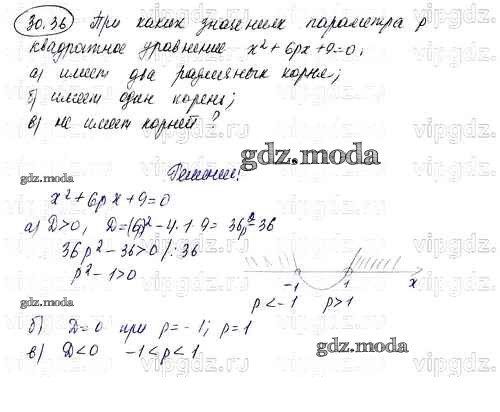 30.36 При каких значениях параметра p
квадратное уравнение x²+6px+9=0:
а) имеет два различных корня;
б) имеет один корень;
в) не имеет корней?
gdz.moda
Решение:
gdz.moda
x²+6px+9=0
а) D>0, D=(6p)²-4·1·9=36p²-36
36p²-36>0 /:36
p²-1>0
-1 1 x
p<-1 p>1
б) D=0 при p=-1; p=1
в) D<0 -1<p<1
gdz.moda
gdz.moda
vipgdz.ru